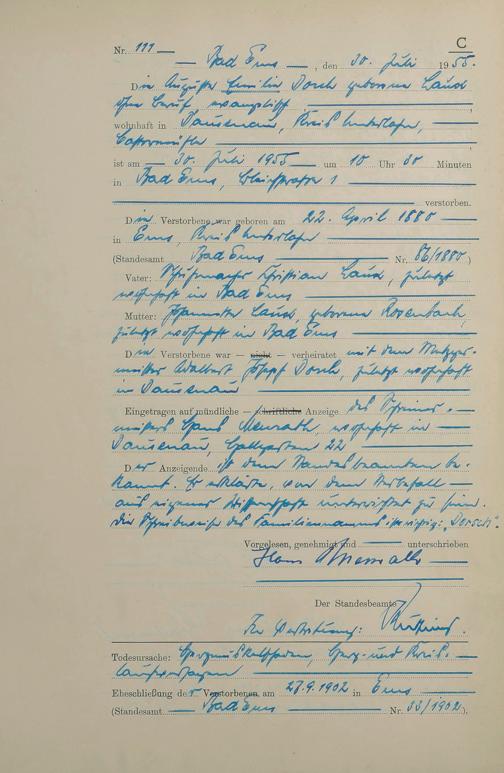 C
Nr. 111
Bad Ems, den 30. Juli 1955.
Die Auguste Emilie Dorsch geborene Laux
ohne Beruf, evangelisch,
wohnhaft in Dausenau, Kreis Unterlahn,
ist am 30. Juli 1955 um 10 Uhr 30 Minuten
in Bad Ems, Bleichstraße 1
verstorben.
Die Verstorbene war geboren am 22. April 1880
in Ems, Kreis Unterlahn
(Standesamt Bad Ems Nr. 86/1880)
Vater: Christian Laux, zuletzt
wohnhaft in Bad Ems
Mutter: Laux, geborene Rosenbach,
zuletzt wohnhaft in Bad Ems
Die Verstorbene war – nicht – verheiratet mit dem Metzger-
meister Adalbert Josef Dorsch, zuletzt wohnhaft
in Dausenau
Eingetragen auf mündliche – schriftliche Anzeige des Schreiner-
meisters Hans, wohnhaft in
Dausenau, 22
Der Anzeigende ist dem Standesbeamten be-
kannt. Er erklärte, von dem Sterbefall
aus eigener Wissenschaft unterrichtet zu sein.
Die Schreibweise des Familiennamens ist richtig: "Dorsch".
Vorgelesen, genehmigt und unterschrieben
Hans
Der Standesbeamte
In Vertretung:
Todesursache: Herzmuskelschaden, Herz- und Kreis-
laufversagen
Eheschließung der Verstorbenen am 27.9.1902 in Ems
(Standesamt Bad Ems Nr. 33/1902).